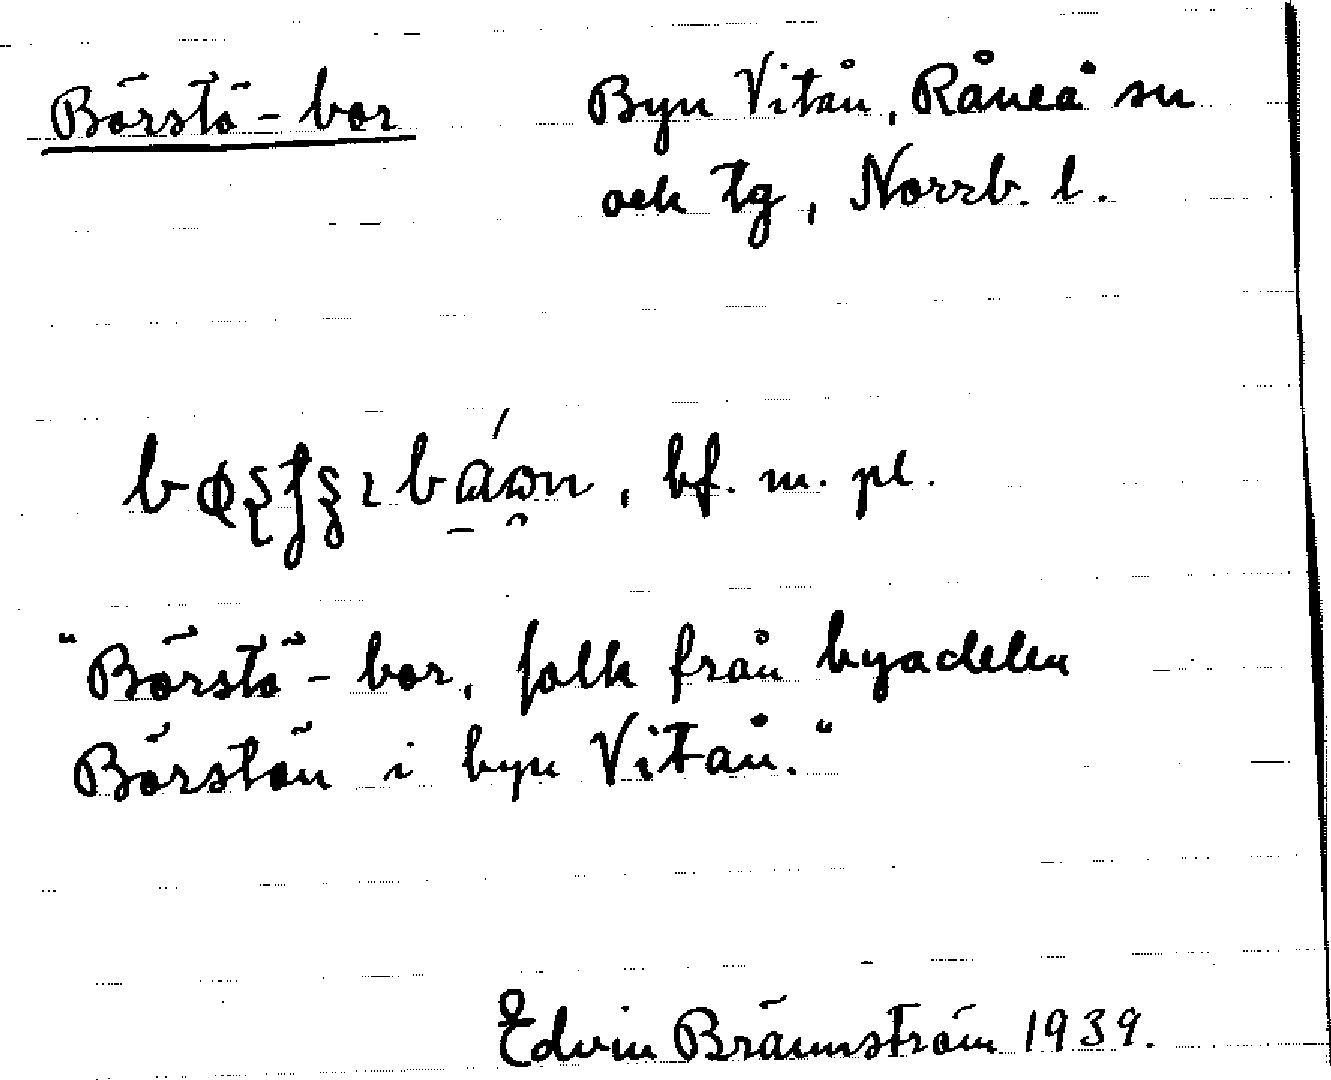 Börstö-bor
Byn Vitån, Råneå sn
och tg, Norrb. l.
bf. m. pl.
"Börstö-bor, folk från byadelen
Börstön i byn Vitån."
Edvin Brännström 1939.